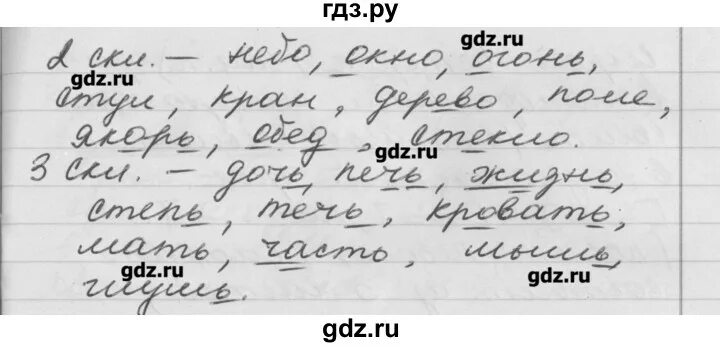 гдз.ру
2 скл. – небо, окно, огонь,
gdz.ru
gdz.ru
стул, кран, дерево, поле,
якорь, обед, стекло.
gdz.ru
3 скл. – дочь, печь, жизнь,
степь, течь, кровать,
мать, часть, мышь,
gdz.ru
gdz.ru
глушь.
gdz.ru